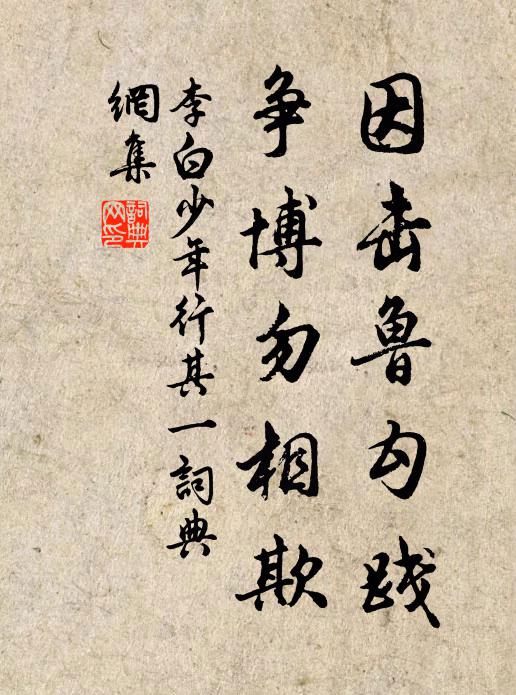 因击鲁勾践
争博勿相欺
李白少年行其一詞典
網集
詞典網印